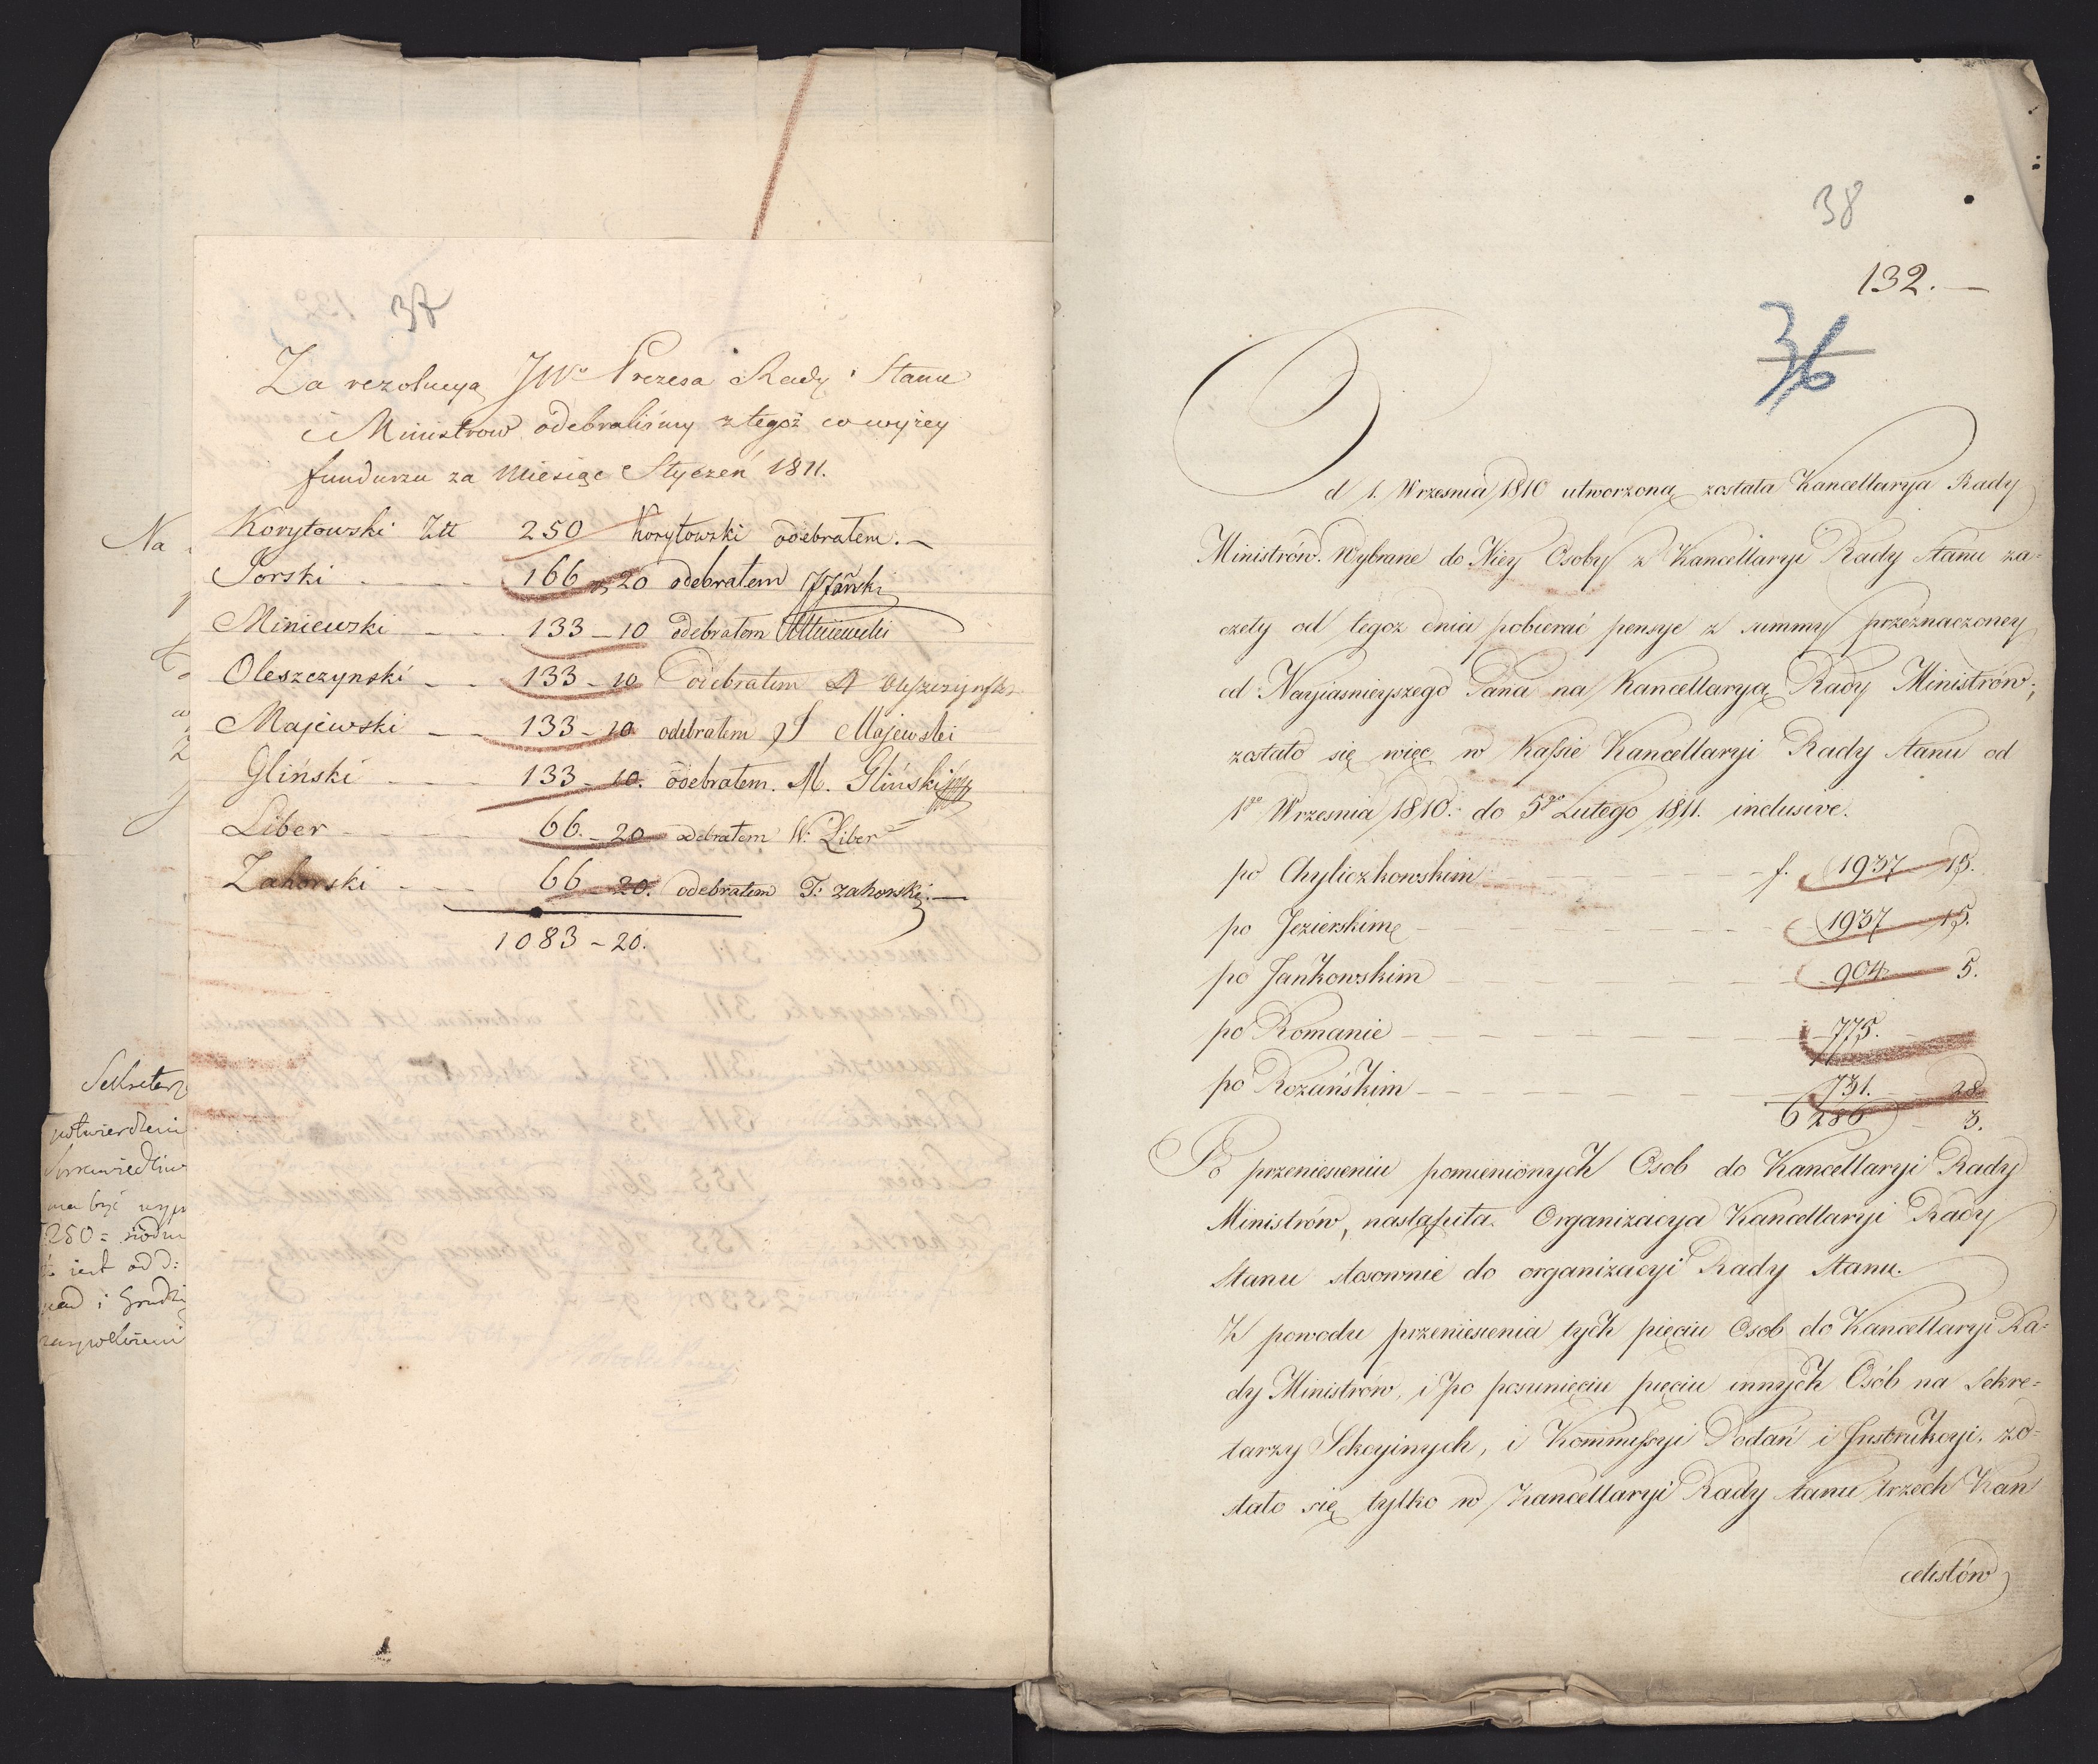 37
Za rezolucyą JWo Prezesa Rady Stanu
i Ministrow odebraliśmy z tegoż co wyżey
funduszu za Miesiąc Styczeń 1811.
Korytowski Złł 250 Korytowski odebrałem. –
Jorski - - - - 166 - 20 odebrałem
Miniewski - - - 133 - 10 odebrałem Miniewski
Oleszczynski - - 133 - 10 odebrałem A Oleszczynski
Majewski - - 133 - 10 odebrałem J Majewski
Gliński - - - 133 - 10. odebrałem. M. Gliński
Liber - - - - 66. - 20 odebrałem W. Liber
Zahorski - - - 66 - 20. odebrałem T: Zahorski. –
1083 - 20.
Na
Sekretarz
potwierdzeni
Sprawiedliw
ma być wyp
250 =
jest od d:
pad i Grudz
zaspokoieni
38
132. –
36
Od 1. Wrzesnia 1810 utworzoną została Kancellarya Rady
Ministrów. Wybrane do Niey Osoby z Kancellaryi Rady Stanu za-
częły od tegoz dnia pobierać pensye z summy przeznaczoney
od Nayiasnieyszego Pana na Kancellaryą Rady Ministrów;
zostało się więc w Kassie Kancellaryi Rady Stanu od
1go Wrzesnia 1810. do 5go Lutego 1811. inclusive.
po Chyliczkowskim - - - - - f. 1937 - 15.
po Jezierskim - - - - - - 1937 - 15.
po Jańkowskim - - - - - - 904 - 5.
po Romanie - - - - - - 775. -
po Rozańskim - - - - - - 731. - 28
6286 - 3.
Po przeniesieniu pomienionych Osob do Kancellaryi Rady
Ministrów, nastąpiła Organizacya Kancellaryi Rady
Stanu stosownie do organizacyi Rady Stanu.
Z powodu przeniesienia tych pięciu Osob do Kancellaryi Ra=
dy Ministrów, i po posunięciu pięciu innych Osób na Sekre=
tarzy Sekcyinych, i Kommissyi Podań i Instrukcyi, zo=
stało się tylko w Kancellaryi Rady Stanu trzech Kan
cellistów